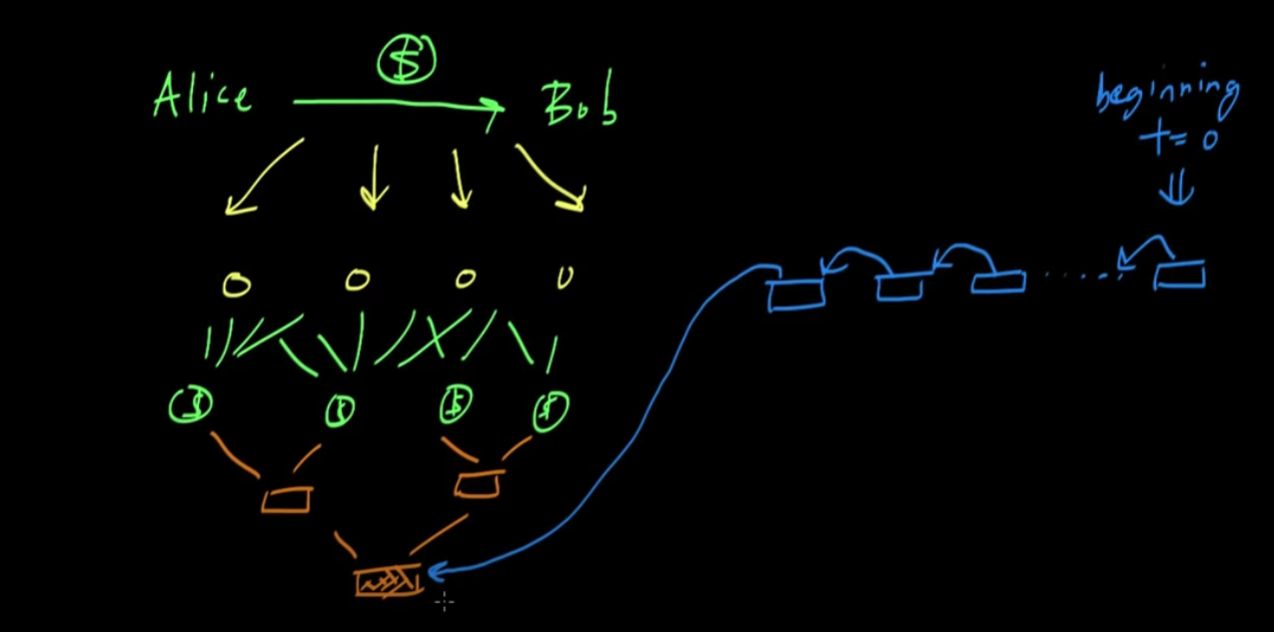 $
Alice Bob
beginning
t=0
0 0 0 0
$ $ $ $